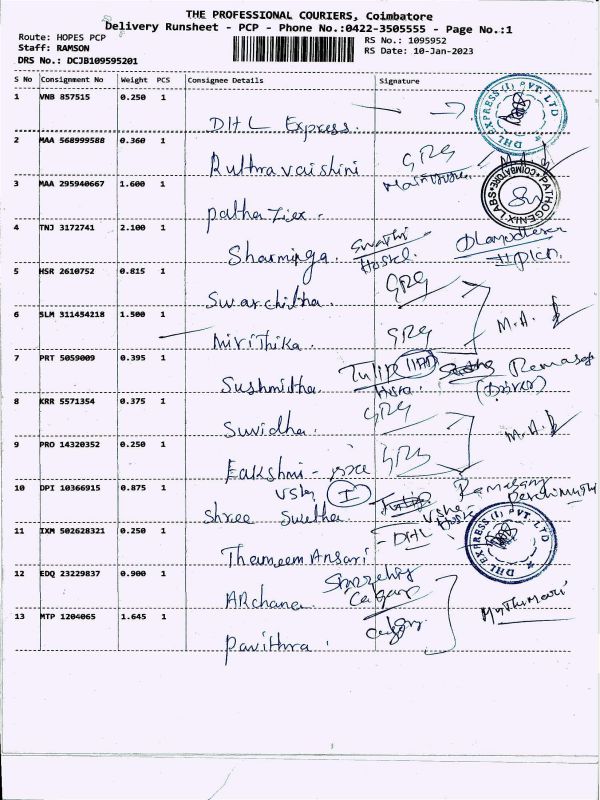 THE PROFESSIONAL COURIERS, Coimbatore
Delivery Runsheet - PCP - Phone No.:0422-3505555 - Page No.:1
Route: HOPES PCP
RS No.: 1095952
Staff: RAMSON
RS Date: 10-Jan-2023
DRS No.: DCJB109595201
S No Consignment No Weight PCS Consignee Details Signature
1 VNB 857515 0.250 1
DHL Express.
DHL EXPRESS (I) PVT. LTD
2 MAA 568999588 0.360 1
Ruthravaishini GRG
3 MAA 295940667 1.600 1
PATHOGENIX LABS COIMBATORE
4 TNJ 3172741 2.100 1
Sharmiga. Swathi Hostel
5 HSR 2610752 0.815 1
Swarchitha. GRG
6 SLM 311454218 1.500 1
Mirithika. GRG M.A.
7 PRT 5059009 0.395 1
Sushmitha Tulip
8 KRR 5571354 0.375 1
Suvidha. GRG
9 PRO 14320352 0.250 1
M.A.
Eakshmi - GRG
10 DPI 10366915 0.875 1
I
Shree Swetha
11 IXM 502628321 0.250 1
- DHL
DHL EXPRESS (I) PVT. LTD
Thameem Ansari
12 EDQ 23229837 0.900 1
ARchana
Muthumari
13 MTP 1204065 1.645 1
Pavithra.